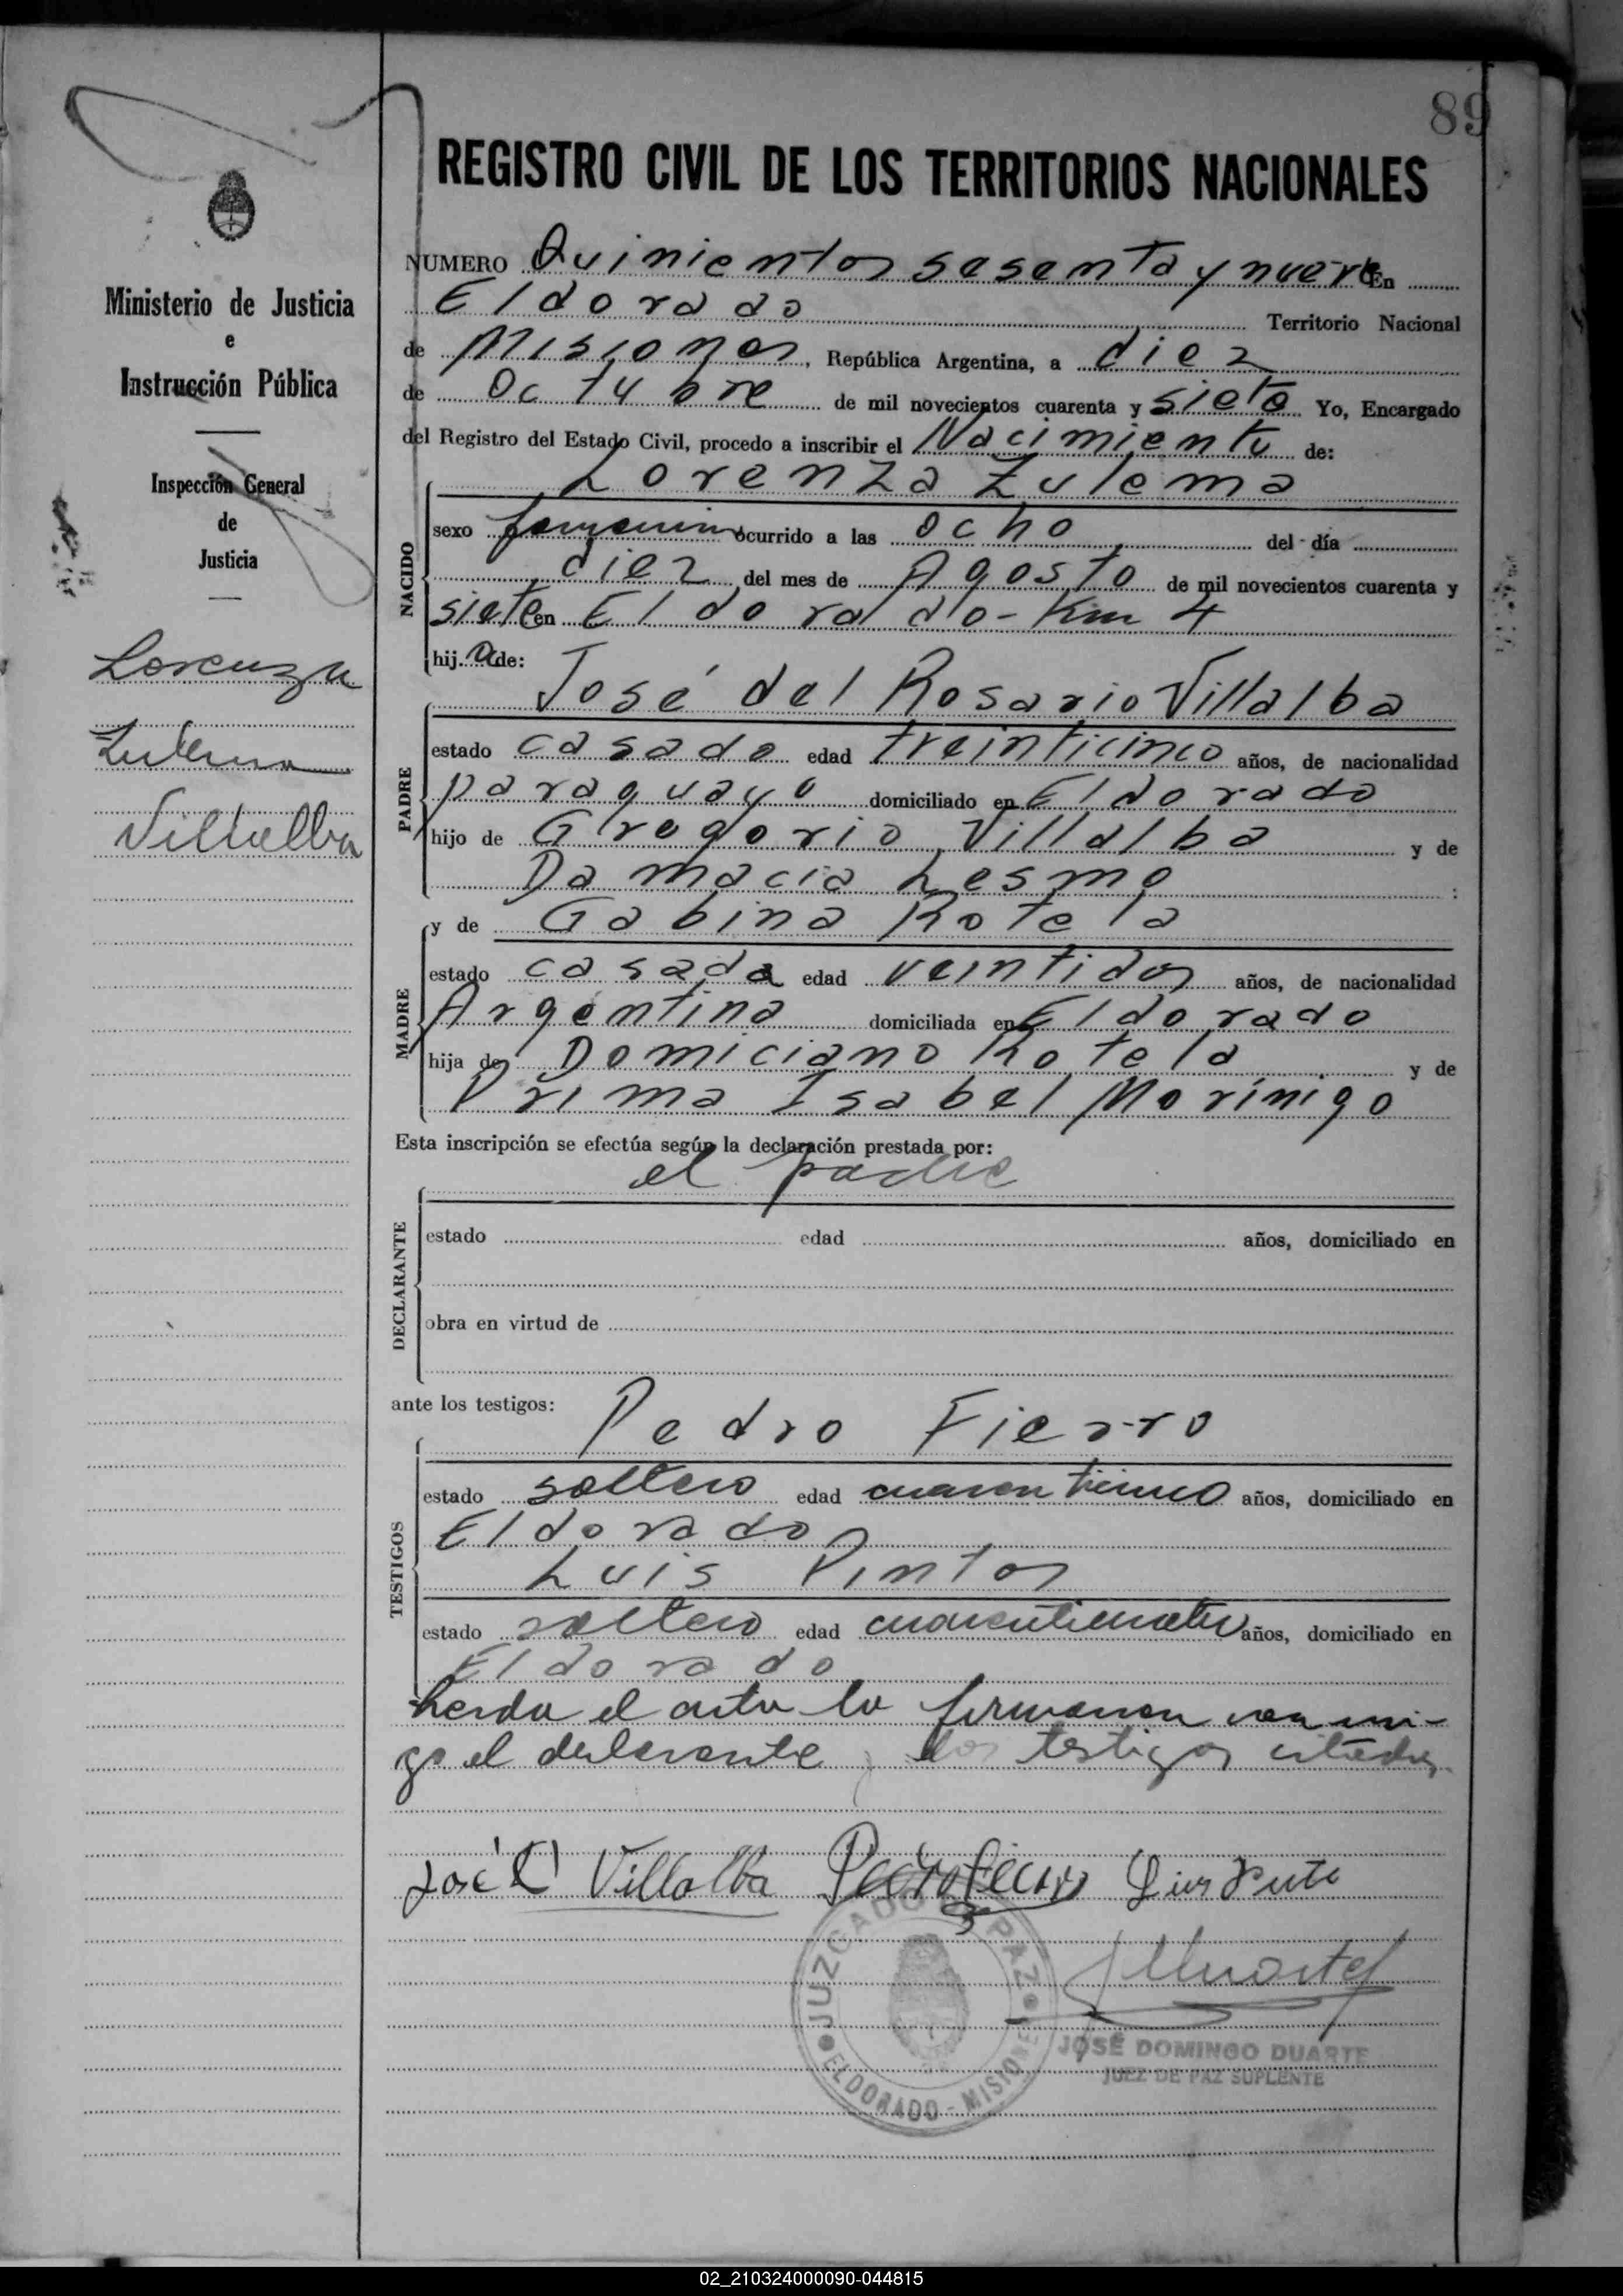 89
REGISTRO CIVIL DE LOS TERRITORIOS NACIONALES
Ministerio de Justicia
e
Instrucción Pública
Inspección General
de
Justicia
Lorenza
Zulema
Villalba
NUMERO Quinientos sesenta y nueve En
Eldorado Territorio Nacional
de Misiones, República Argentina, a diez
de Octubre de mil novecientos cuarenta y siete Yo, Encargado
del Registro del Estado Civil, procedo a inscribir el Nacimiento de:
Lorenza Zulema
NACIDO
sexo femenino ocurrido a las ocho del día
diez del mes de Agosto de mil novecientos cuarenta y
siete en Eldorado - Km 4
hija de:
José del Rosario Villalba
PADRE
estado casado edad treinticinco años, de nacionalidad
paraguayo domiciliado en Eldorado
hijo de Gregorio Villalba y de
Damacia Lesmo
y de Gabina Rotela
MADRE
estado casada edad veintidos años, de nacionalidad
Argentina domiciliada en Eldorado
hija de Domiciano Rotela y de
Prima Isabel Morínigo
Esta inscripción se efectúa según la declaración prestada por:
el padre
DECLARANTE
estado edad años, domiciliado en
obra en virtud de
ante los testigos:
Pedro Fierro
TESTIGOS
estado soltero edad cuarenticinco años, domiciliado en
Eldorado
Luis Pintos
estado soltero edad cuarenticuatro años, domiciliado en
Eldorado
Leida el acta la firmaron conmi-
go el declarante y los testigos citados
José R Villalba Pedro Fierro Luis Pinto
JUZGADO DE PAZ
ELDORADO - MISIONES
JOSÉ DOMINGO DUARTE
JUEZ DE PAZ SUPLENTE
02_210324000090-044815